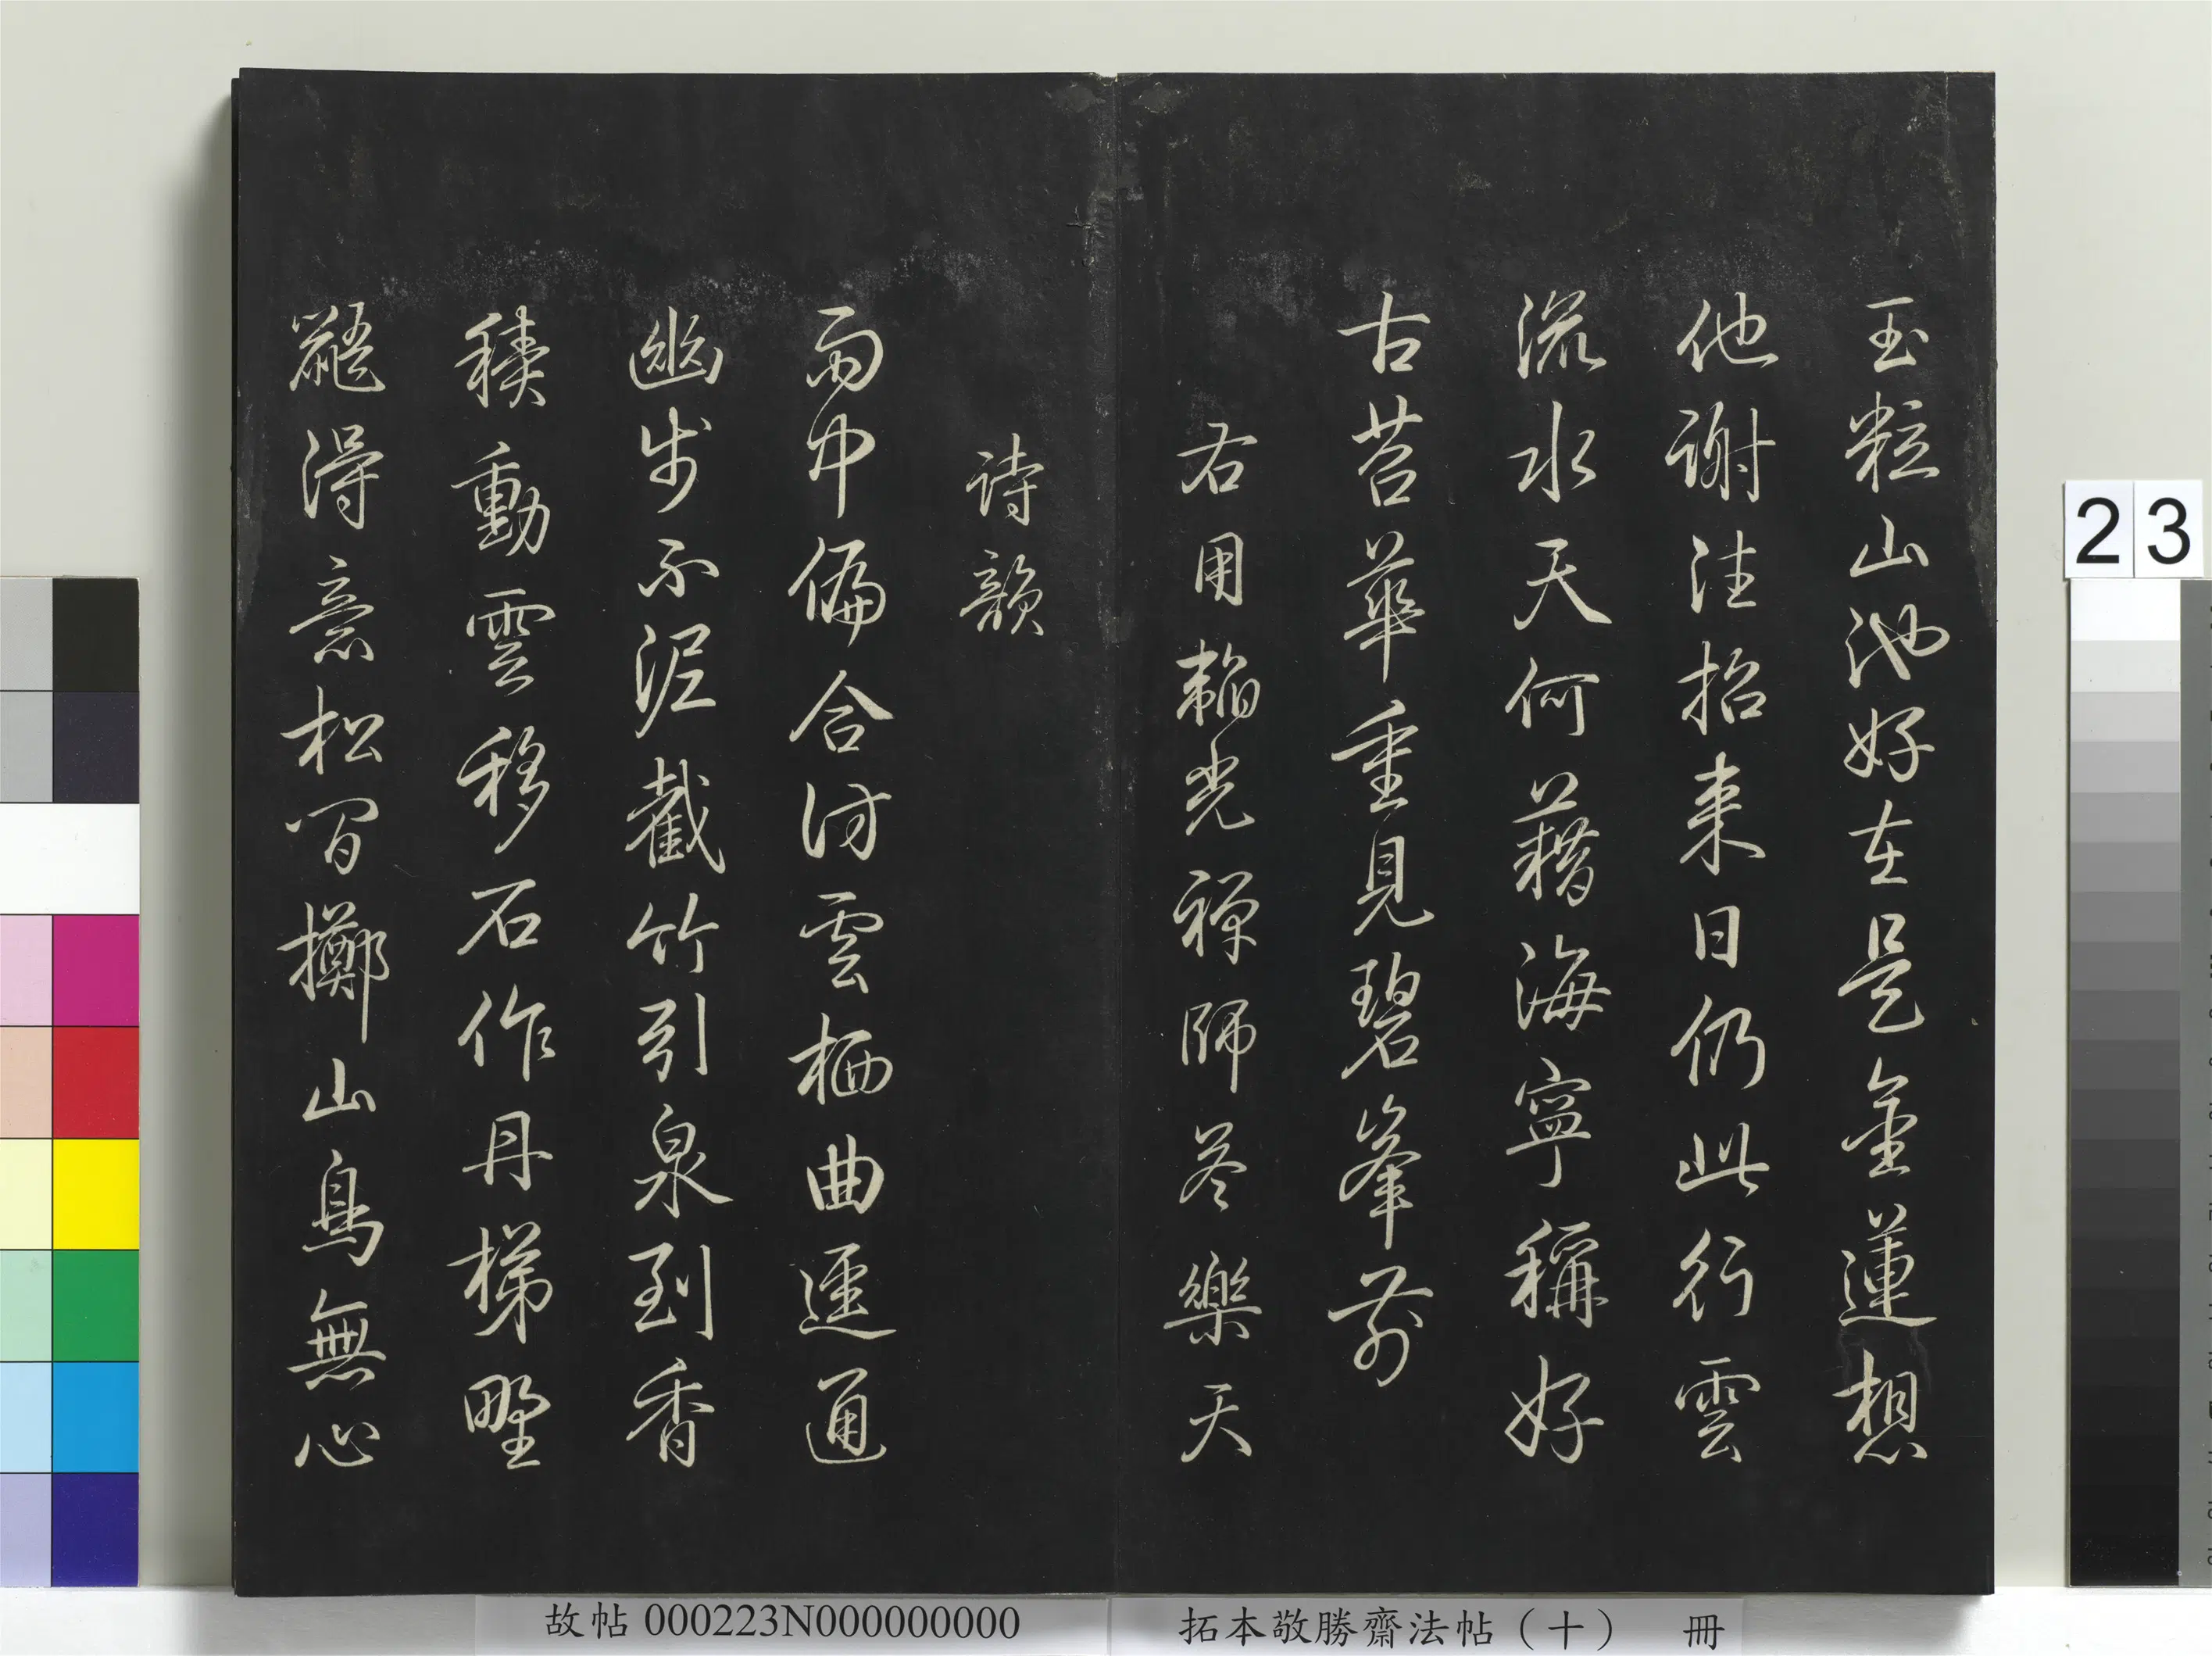 玉粒山池好在是金蓮想
他謝法招来日仍此行雲
流水天何藉海寧稱好
古苔華重見碧峯前
右用韜光禪師荅樂天
詩韻
雨中偏合访雲栖曲逕通
幽步不泥截竹引泉到香
積動雲移石作丹梯野
鼯得意松間擲山鳥無心
23
故帖 000223N000000000
拓本敬勝齋法帖（十） 冊